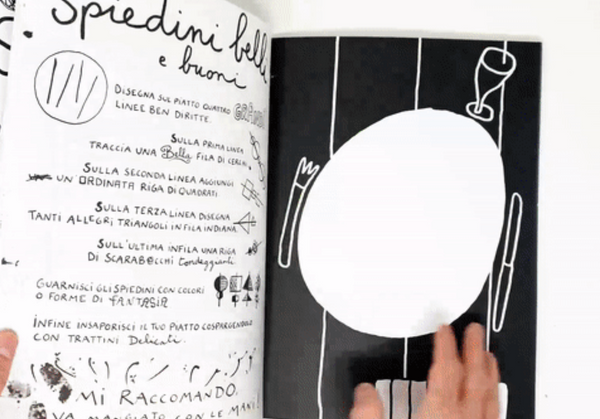 Spiedini belli
e buoni
DISEGNA SUL PIATTO QUATTRO GRANDI
LINEE BEN DIRITTE.
SULLA PRIMA LINEA
TRACCIA UNA Bella FILA DI CERCHI.
SULLA SECONDA LINEA AGGIUNGI
UN'ORDINATA RIGA DI QUADRATI
SULLA TERZA LINEA DISEGNA
TANTI ALLEGRI TRIANGOLI IN FILA INDIANA.
SULL'ULTIMA INFILA UNA RIGA
DI SCARABOCCHI tondeggianti.
GUARNISCI GLI SPIEDINI CON COLORI
O FORME DI FANTASIA
INFINE INSAPORISCI IL TUO PIATTO COSPARGENDOLO
CON TRATTINI Delicati.
MI RACCOMANDO,
VA MANGIATO CON LE MANI!